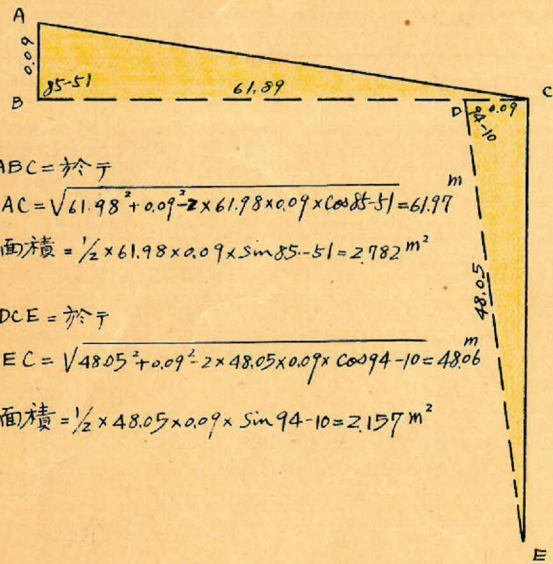 A
0.09
85-51
B
61.89
C
D
0.09
94-10
48.05
E
ABC = 於テ
AC = √61.98² + 0.09² - 2 × 61.98 × 0.09 × cos 85-51 = 61.97 m
面積 = 1/2 × 61.98 × 0.09 × sin 85-51 = 2.782 m²
DCE = 於テ
EC = √48.05² + 0.09² - 2 × 48.05 × 0.09 × cos 94-10 = 48.06 m
面積 = 1/2 × 48.05 × 0.09 × sin 94-10 = 2.157 m²